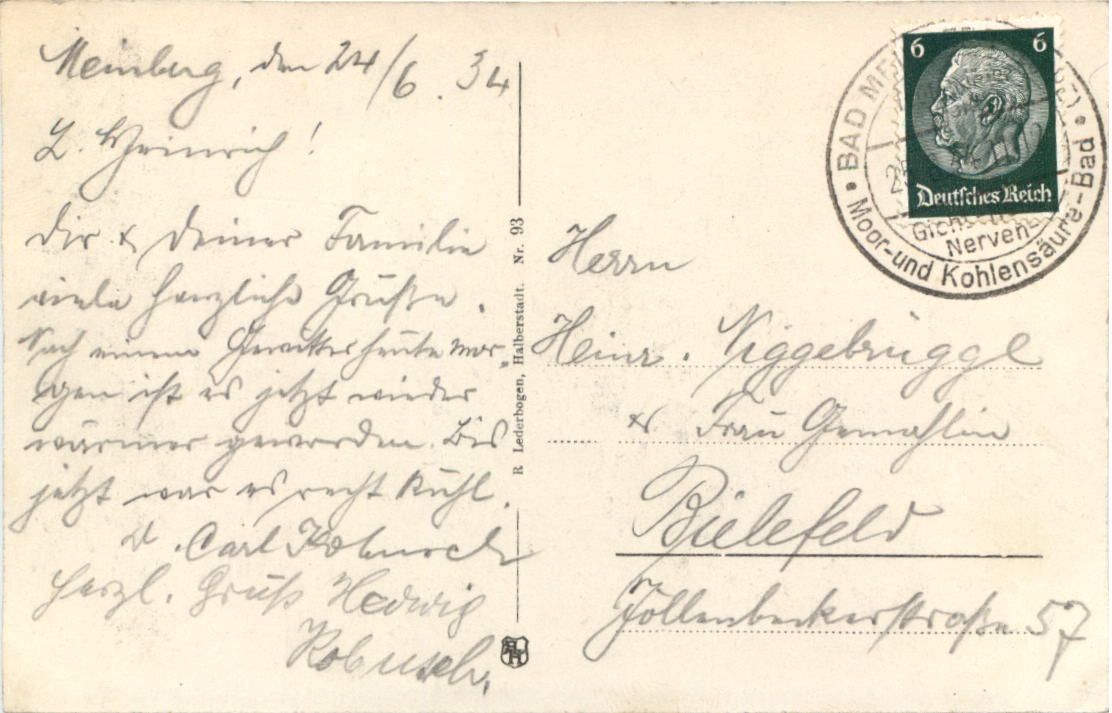 Meinberg, den 24/6. 34
L. Heinrich!
Dir & Deiner Familie
viele herzliche Grüße.
Nach einem Gewitter heute mor-
gen ist es jetzt wieder
wärmer geworden. Bis
jetzt war es recht kühl.
D. Carl Robusch
Herzl. Gruß Hedwig
Robusch.
R Lederbogen, Halberstadt. Nr. 93
6 6
Deutsches Reich
BAD ME
Moor-und Kohlensäure-Bad
Nerven-
Herrn
Heinr. Niggebrügge
& Frau Gemahlin
Bielefeld
Jöllenbeckerstraße 57